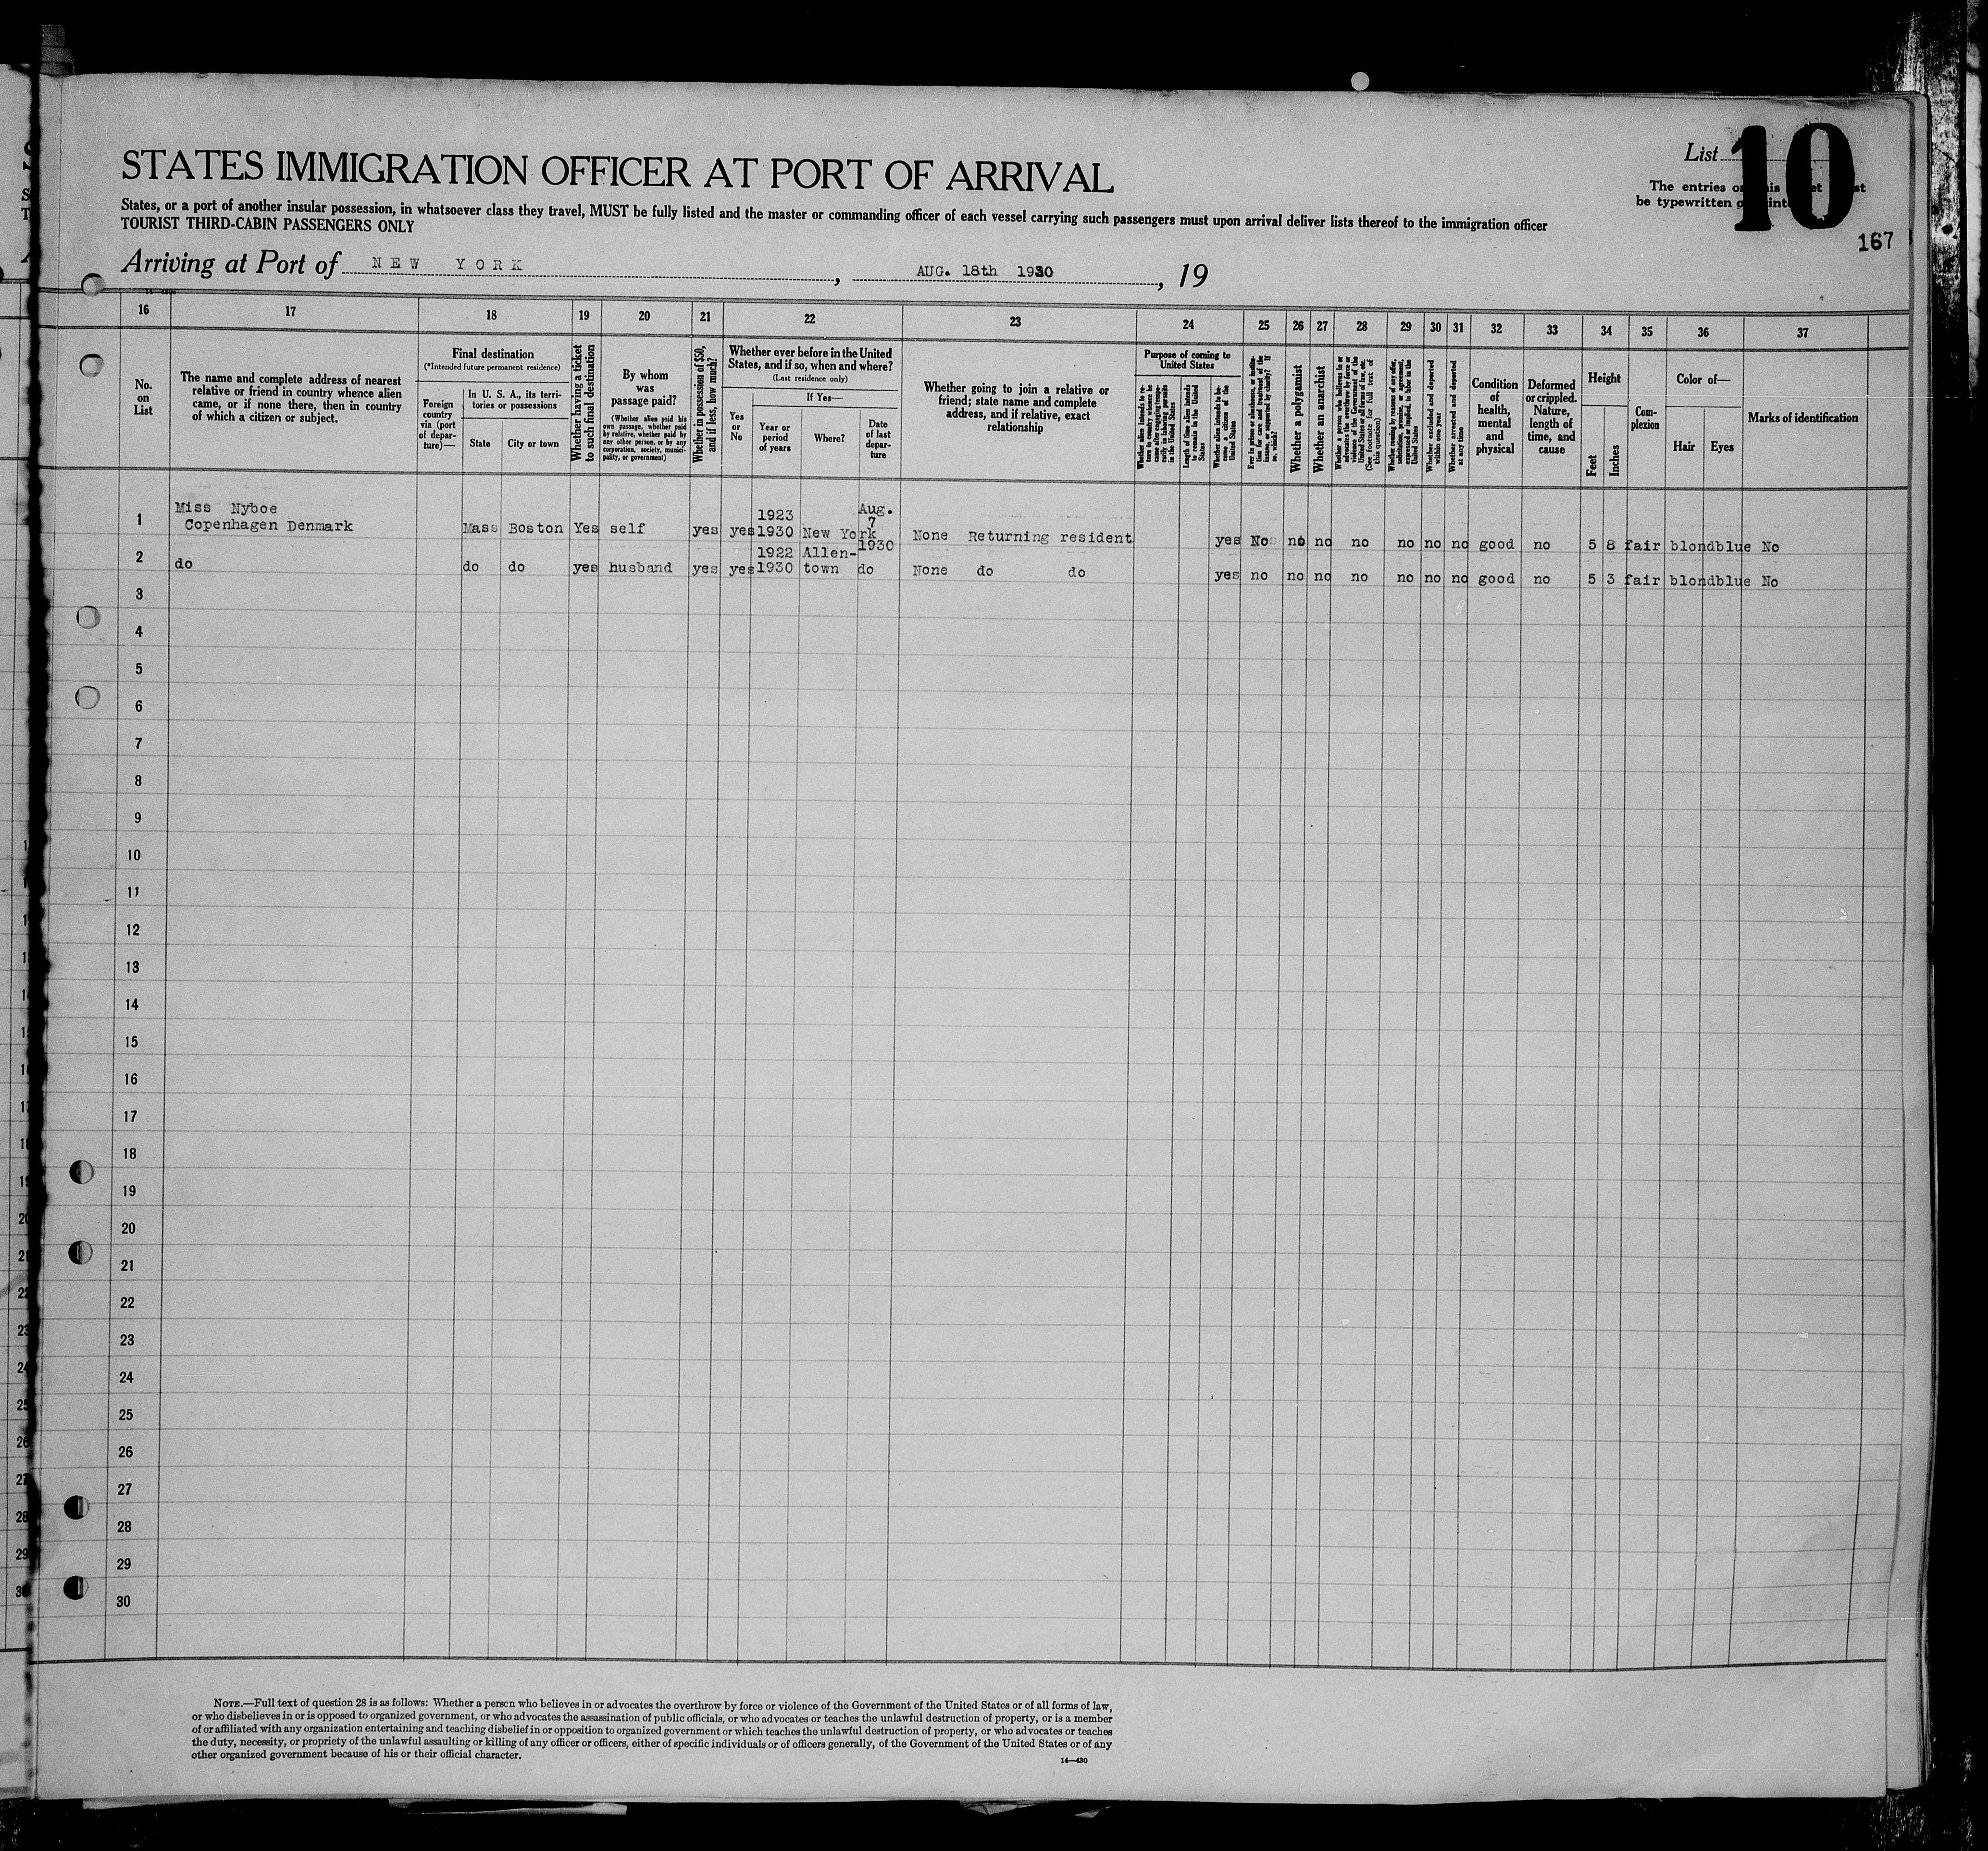 STATES IMMIGRATION OFFICER AT PORT OF ARRIVAL
List
10
The entries on this
be typewritten
167
States, or a port of another insular possession, in whatsoever class they travel, MUST be fully listed and the master or commanding officer of each vessel carrying such passengers must upon arrival deliver lists thereof to the immigration officer
TOURIST THIRD-CABIN PASSENGERS ONLY
Arriving at Port of NEW YORK, AUG. 18th 1930, 19
16 17 18 19 20 21 22 23 24 25 26 27 28 29 30 31 32 33 34 35 36 37
No.
on
List
The name and complete address of nearest
relative or friend in country whence alien
came, or if none there, then in country
of which a citizen or subject.
Final destination
(*Intended future permanent residence)
Foreign
country
via (port
of depar-
ture)—
In U. S. A., its terri-
tories or possessions
State
City or town
Whether having a ticket
to such final destination
By whom
was
passage paid?
(Whether alien paid his
own passage, whether paid
by relative, whether paid by
any other person, or by any
corporation, society, munici-
pality, or government)
Whether in possession of $50,
and if less, how much?
Whether ever before in the United
States, and if so, when and where?
(Last residence only)
Yes
or
No
If Yes—
Year or
period
of years
Where?
Date
of last
depar-
ture
Whether going to join a relative or
friend; state name and complete
address, and if relative, exact
relationship
Purpose of coming to
United States
Whether alien intends to re-
turn to country whence he
came after engaging tempo-
rarily in laboring pursuits
in the United States
Length of time alien intends
to remain in the United
States
Whether alien intends to be-
come a citizen of the
United States
Ever in prison or almshouse, or institu-
tion for care and treatment of the
insane, or supported by charity? If
so, which?
Whether a polygamist
Whether an anarchist
Whether a person who believes in or
advocates the overthrow by force or
violence of the Government of the
United States or all forms of law, etc.
(See footnote for full text of
this question)
Whether coming by reasons of any offer,
solicitation, promise, or agreement,
expressed or implied, to labor in the
United States
Whether excluded and deported
within one year
Whether arrested and deported
at any time
Condition
of
health,
mental
and
physical
Deformed
or crippled.
Nature,
length of
time, and
cause
Height
Feet
Inches
Com-
plexion
Color of—
Hair
Eyes
Marks of identification
Miss Nyboe 1923 Aug.
1 Copenhagen Denmark Mass Boston Yes self yes yes 1930 New York 7 1930 None Returning resident yes No no no no no no no good no 5 8 fair blond blue No
1922 Allen-
2 do do do yes husband yes yes 1930 town do None do do yes no no no no no no no good no 5 3 fair blond blue No
3
4
5
6
7
8
9
10
11
12
13
14
15
16
17
18
19
20
21
22
23
24
25
26
27
28
29
30
NOTE.—Full text of question 28 is as follows: Whether a person who believes in or advocates the overthrow by force or violence of the Government of the United States or of all forms of law,
or who disbelieves in or is opposed to organized government, or who advocates the assassination of public officials, or who advocates or teaches the unlawful destruction of property, or is a member
of or affiliated with any organization entertaining and teaching disbelief in or opposition to organized government or which teaches the unlawful destruction of property, or who advocates or teaches
the duty, necessity, or propriety of the unlawful assaulting or killing of any officer or officers, either of specific individuals or of officers generally, of the Government of the United States or of any
other organized government because of his or their official character.
14—430